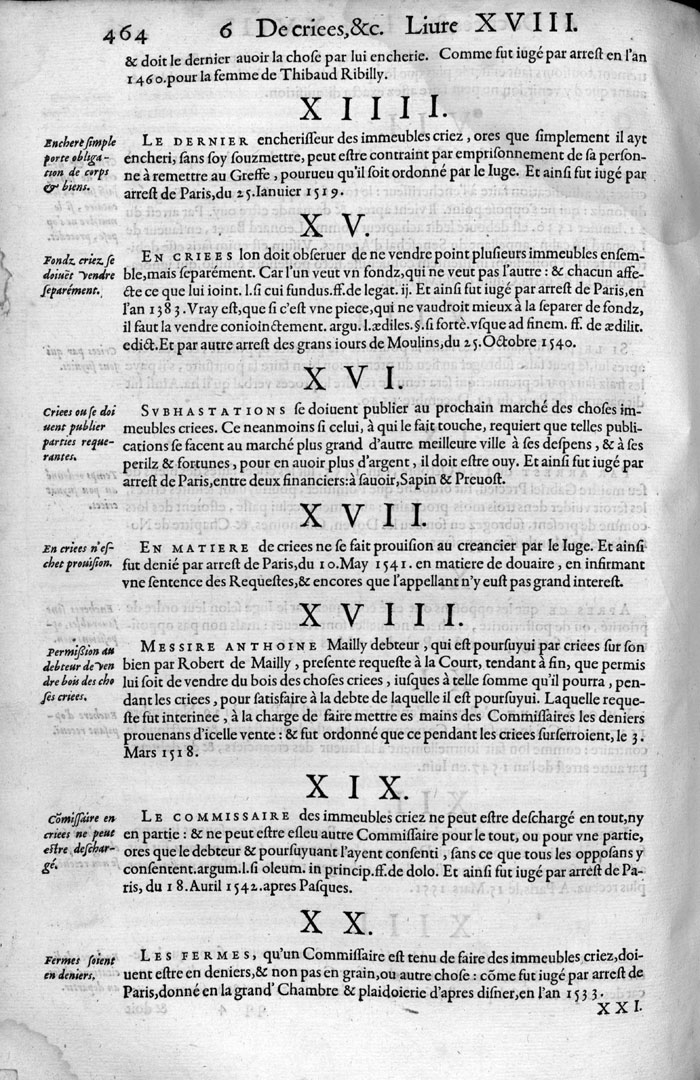 464 6 De criees,&c. Liure XVIII.
& doit le dernier auoir la chose par lui encherie. Comme fut iugé par arrest en l'an
1460. pour la femme de Thibaud Ribilly.
XIIII.
Enchere simple
porte obliga-
tion de corps
& biens.
LE DERNIER encherisseur des immeubles criez, ores que simplement il ayt
encheri, sans soy souzmettre, peut estre contraint par emprisonnement de sa person-
ne à remettre au Greffe, pourueu qu'il soit ordonné par le Iuge. Et ainsi fut iugé par
arrest de Paris, du 25. Ianuier 1519.
XV.
Fondz criez se
doiuēt vendre
separément.
EN CRIEES lon doit obseruer de ne vendre point plusieurs immeubles ensem-
ble, mais separément. Car l'un veut vn fondz, qui ne veut pas l'autre : & chacun affe-
cte ce que lui ioint. l. si cui fundus. ff. de legat. ij. Et ainsi fut iugé par arrest de Paris, en
l'an 1383. Vray est, que si c'est vne piece, qui ne vaudroit mieux à la separer de fondz,
il faut la vendre conioinctement. argu. l. ædiles. §. si fortè. vsque ad finem. ff. de ædilit.
edict. Et par autre arrest des grans iours de Moulins, du 25. Octobre 1540.
XVI.
Criees ou se doi
uent publier
parties reque-
rantes.
SVBHASTATIONS se doiuent publier au prochain marché des choses im-
meubles criees. Ce neanmoins si celui, à qui le fait touche, requiert que telles publi-
cations se facent au marché plus grand d'autre meilleure ville à ses despens, & à ses
perilz & fortunes, pour en auoir plus d'argent, il doit estre ouy. Et ainsi fut iugé par
arrest de Paris, entre deux financiers: à sauoir, Sapin & Preuost.
XVII.
En criees n'es-
chet prouision.
EN MATIERE de criees ne se fait prouision au creancier par le Iuge. Et ainsi
fut denié par arrest de Paris, du 10. May 1541. en matiere de douaire, en infirmant
vne sentence des Requestes, & encores que l'appellant n'y eust pas grand interest.
XVIII.
Permißion au
debteur de ven
dre bois des cho
ses criees.
MESSIRE ANTHOINE Mailly debteur, qui est poursuyui par criees sur son
bien par Robert de Mailly, presente requeste à la Court, tendant à fin, que permis
lui soit de vendre du bois des choses criees, iusques à telle somme qu'il pourra, pen-
dant les criees, pour satisfaire à la debte de laquelle il est poursuyui. Laquelle reque-
ste fut interinee, à la charge de faire mettre es mains des Commissaires les deniers
prouenans d'icelle vente : & fut ordonné que ce pendant les criees surserroient, le 3.
Mars 1518.
XIX.
Cõmissaire en
criees ne peut
estre deschar-
gé.
LE COMMISSAIRE des immeubles criez ne peut estre deschargé en tout, ny
en partie : & ne peut estre esleu autre Commissaire pour le tout, ou pour vne partie,
ores que le debteur & poursuyuant l'ayent consenti, sans ce que tous les opposans y
consentent. argum. l. si oleum. in princip. ff. de dolo. Et ainsi fut iugé par arrest de Pa-
ris, du 18. Auril 1542. apres Pasques.
XX.
Fermes soient
en deniers.
LES FERMES, qu'un Commissaire est tenu de faire des immeubles criez, doi-
uent estre en deniers, & non pas en grain, ou autre chose : cõme fut iugé par arrest de
Paris, donné en la grand' Chambre & plaidoierie d'apres disner, en l'an 1533.
XXI.